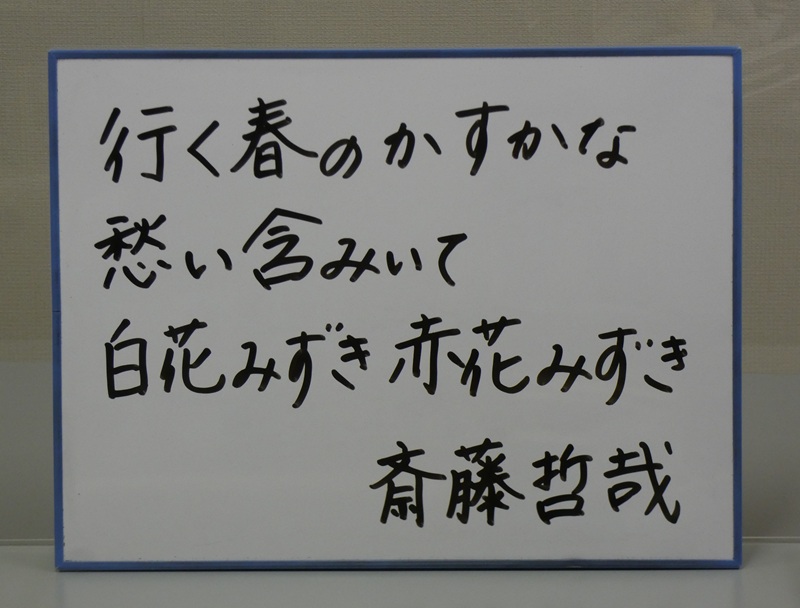 行く春のかすかな
愁い含みいて
白花みずき赤花みずき
斎藤哲哉